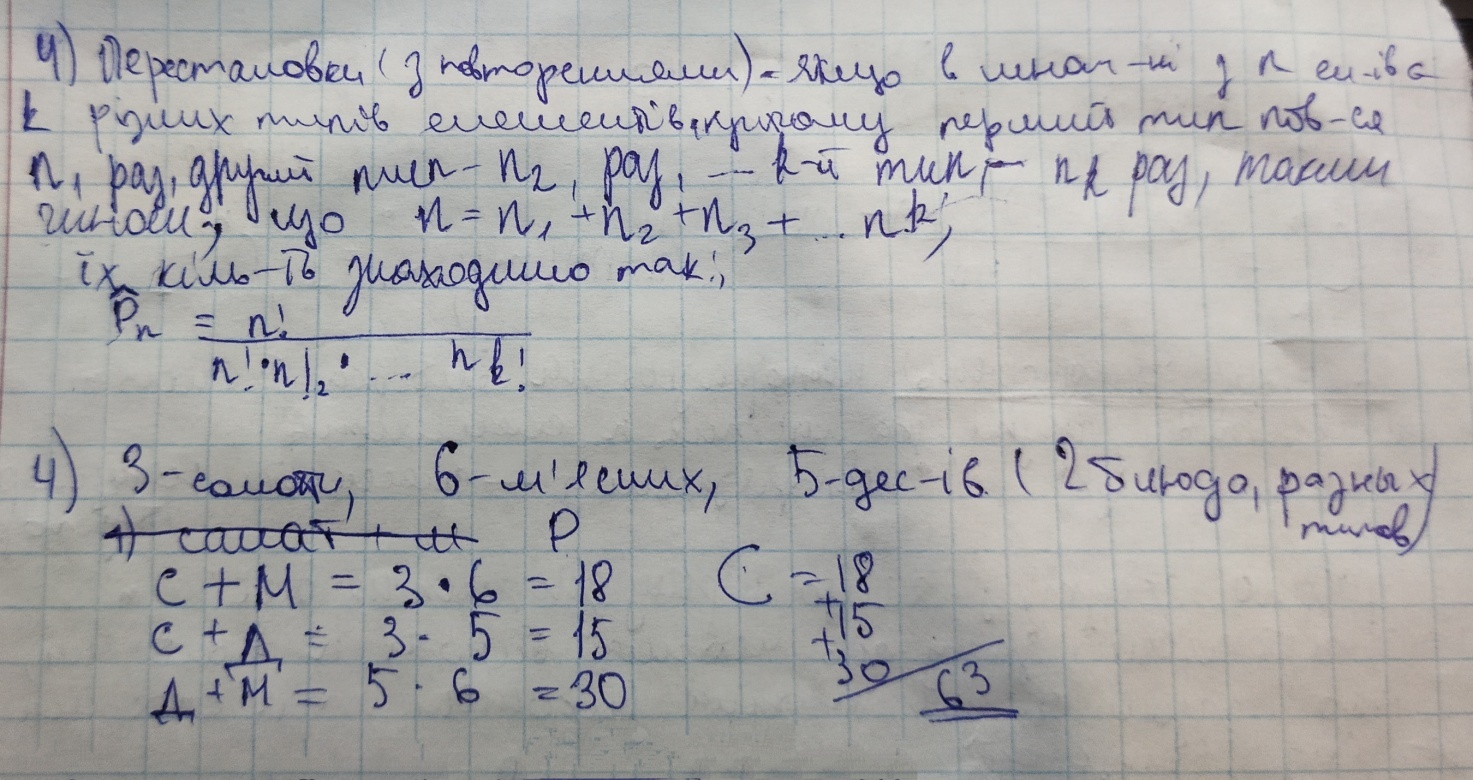 4) Перестановки (з повторениями) - якщо в множ-ні з n ел-ів є
k різних типів елементів, при чому перший тип пов-ся
n₁ раз, другий тип - n₂, раз, ... k-й тип, - nₖ раз, таким
чином, що n = n₁ + n₂ + n₃ + ... nk,
їх кіль-ть знаходимо так:,
P̂ₙ = n!
n! · n!₂ · ... nₖ!
4) 3-салати, 6-м'ясних, 5-дес-ів (2 блюда, разных
типов)
1) салат + м P
С + М = 3 · 6 = 18
С + Д = 3 · 5 = 15
Д + М = 5 · 6 = 30
C = 18
+ 15
+ 30
63